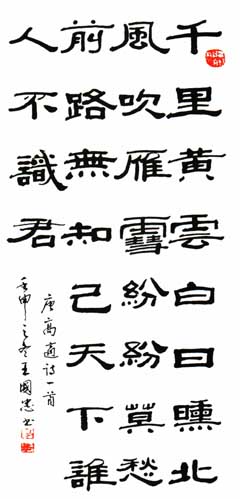 千里黃雲白日曛北
風吹雁雪紛紛莫愁
前路無知己天下誰
人不識君
唐高適诗一首
壬申之冬王國忠书